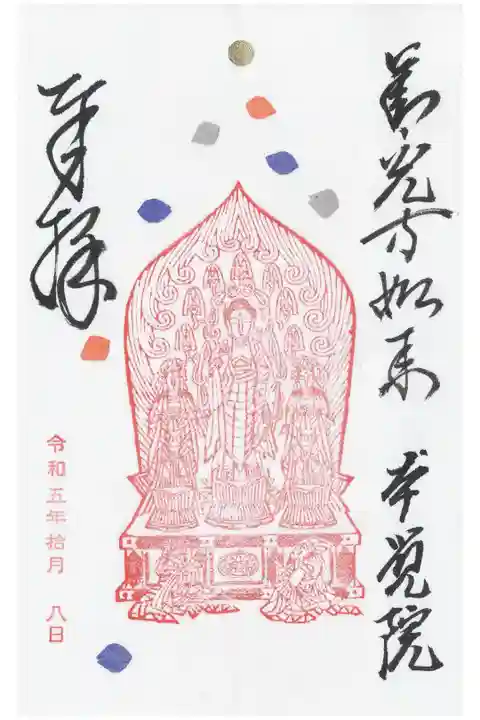 善光寺如来 本覚院
奉拝
令和五年拾月 八日